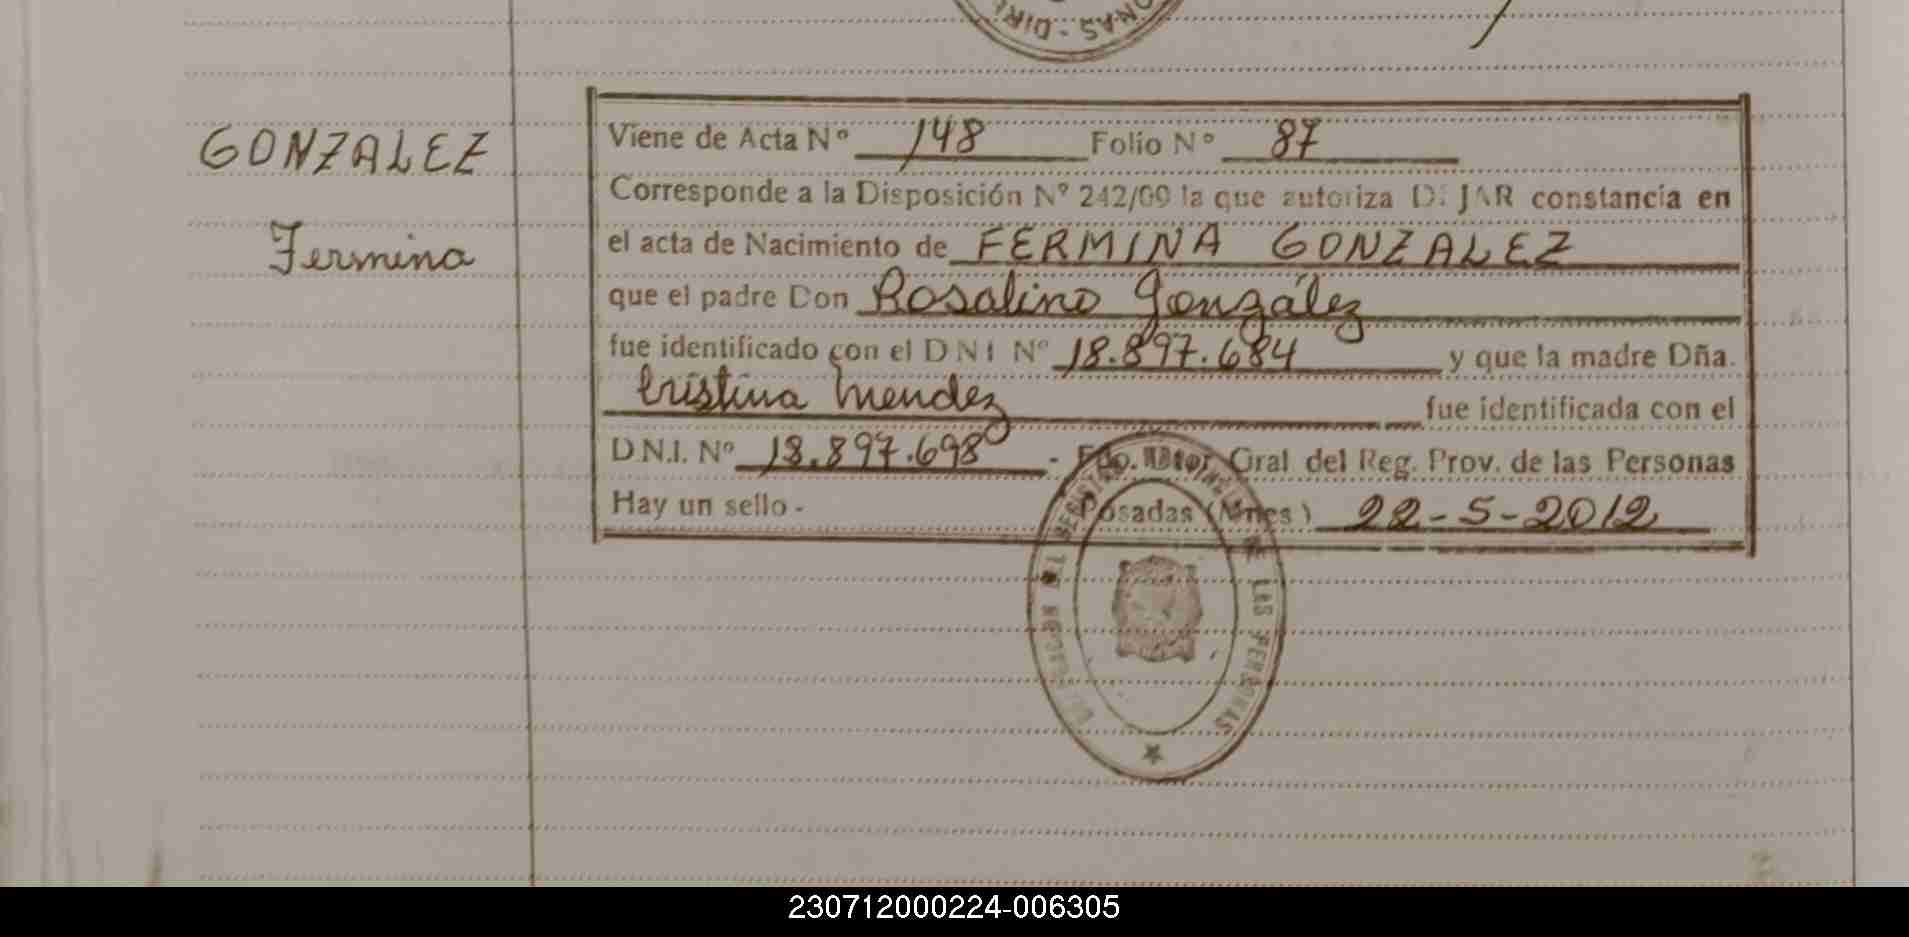 GONZALEZ
Fermina
Viene de Acta Nº 148 Folio Nº 87
Corresponde a la Disposición Nº 242/09 la que autoriza DEJAR constancia en
el acta de Nacimiento de FERMINA GONZALEZ
que el padre Don Rosalino González
fue identificado con el DNI Nº 18.897.684 y que la madre Dña.
Cristina Mendez fue identificada con el
D.N.I. Nº 18.897.698 - Fdo. Dtor. Gral del Reg. Prov. de las Personas
Hay un sello - Posadas (Mnes) 22-5-2012
DE LAS PERSONAS
230712000224-006305